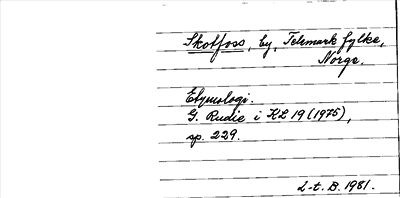 Skotfoss, by, Telemark fylke,
Norge.
Etymologi.
G. Rudie i KL 19 (1975),
sp. 229.
L-t. B. 1981.